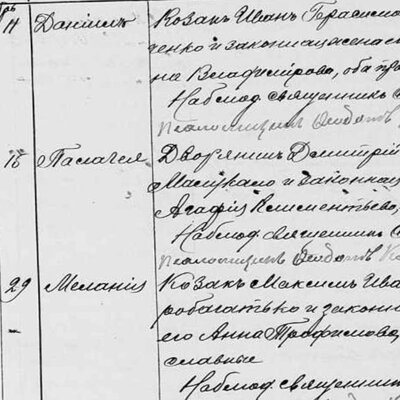 11 Даніилъ Козакъ Иванъ Герасимо
енко и законная жена е
на Владимірова, оба пра
Наблюд. священникъ
Псаломщикъ Ѳеодотъ
18 Пелагея Дворянинъ Дмитрій
и законная
Агафія Климентьева,
Наблюд. священникъ
Псаломщикъ Ѳеодотъ
29 Меланія Козакъ Максимъ Ива
робагатько и законн
его Анна Трофимова,
славные
Наблюд. священник